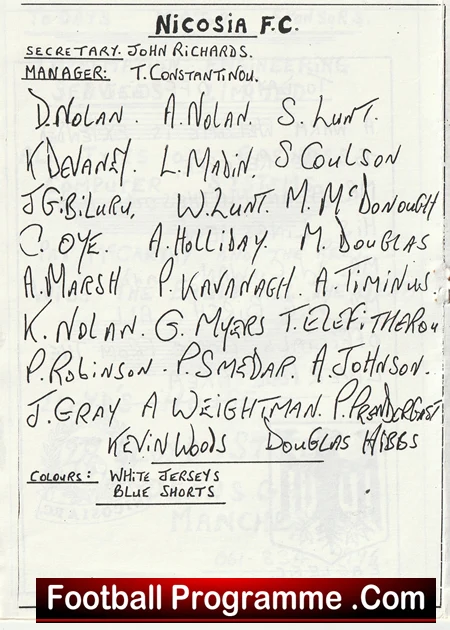 NICOSIA F.C.
SECRETARY. JOHN RICHARDS.
MANAGER: T. CONSTANTINOU.
D. NOLAN. A. NOLAN. S. LUNT.
K DEVANEY. L. MADIN. S COULSON
J GIBILURU, W. LUNT. M. McDONOUGH
C. OYE. A. HOLLIDAY. M. DOUGLAS
A. MARSH P. KAVANAGH. A. TIMINUS.
K. NOLAN. G. MYERS T. ELEFITHEROU
P. ROBINSON. P. SMEDAR. A. JOHNSON.
J. GRAY A WEIGHTMAN. P. PRENDERGAST
KEVIN WOODS DOUGLAS HIBBS
COLOURS: WHITE JERSEYS
BLUE SHORTS
Football Programme .Com